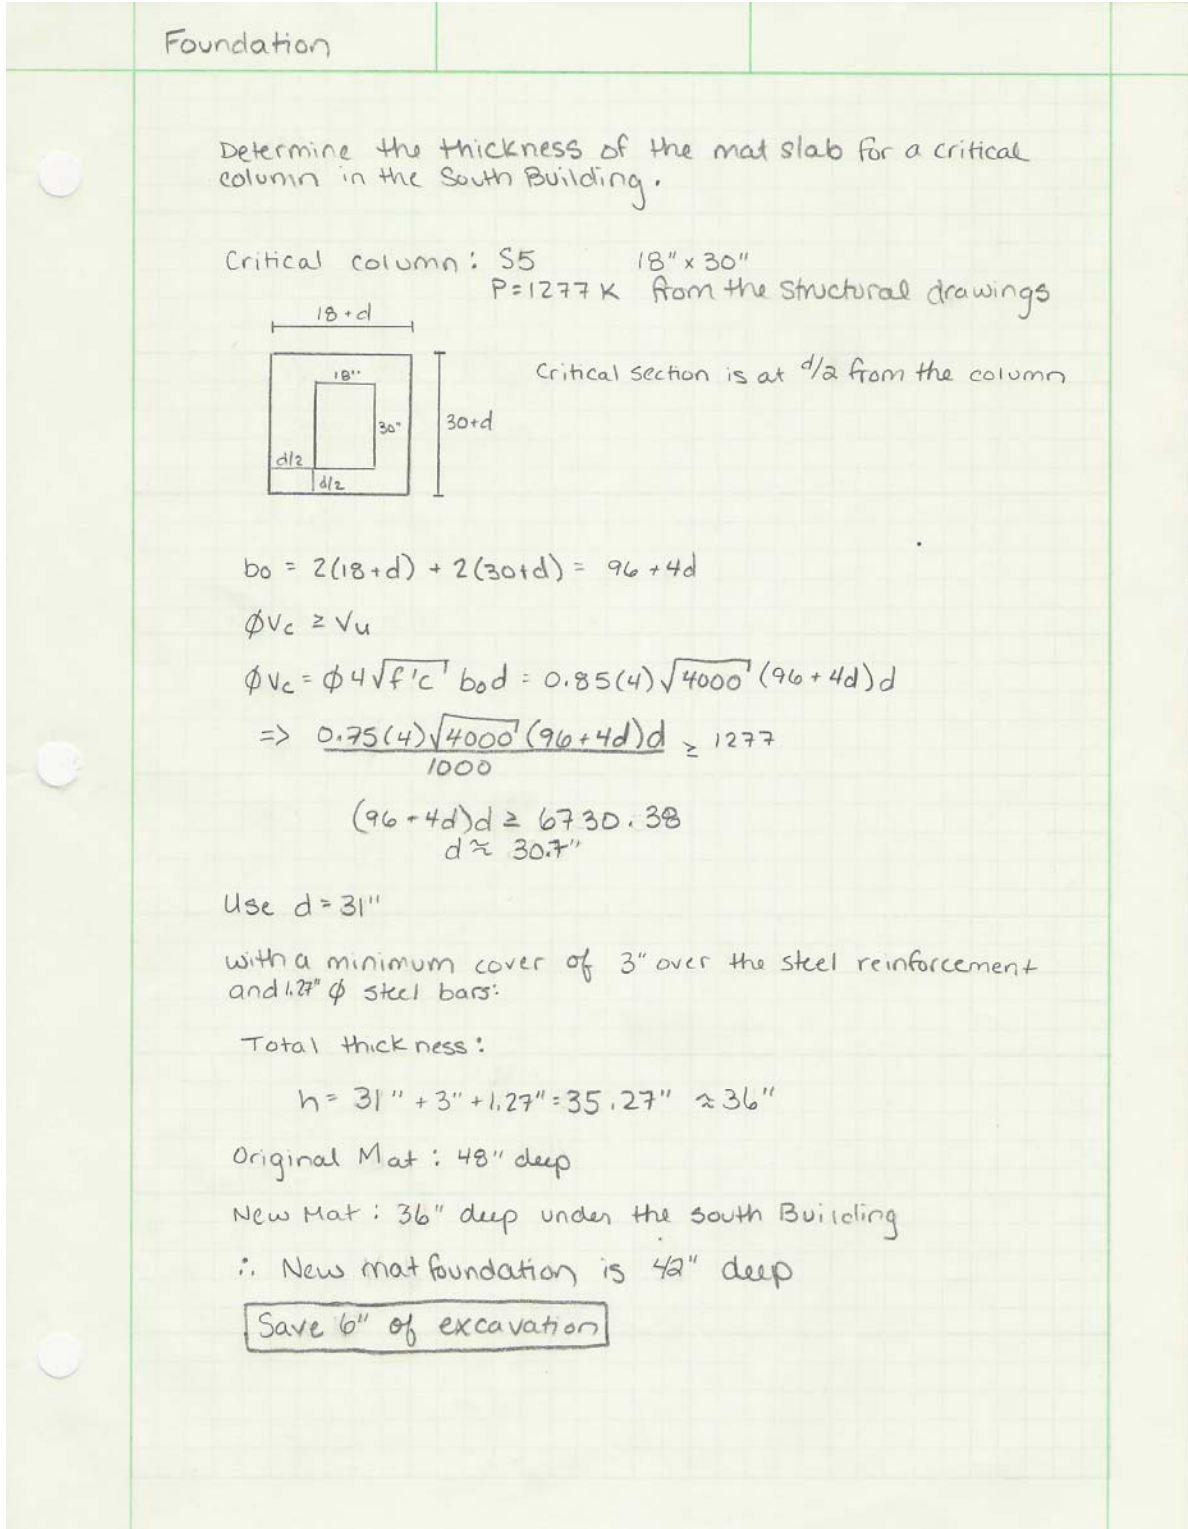 Foundation
Determine the thickness of the mat slab for a critical
column in the South Building.
Critical column: S5 18" x 30"
P=1277 K from the structural drawings
18+d
Critical section is at d/2 from the column
18"
30"
30+d
d/2
d/2
bo = 2(18+d) + 2(30+d) = 96 + 4d
ϕVc ≥ Vu
ϕVc = ϕ4√f'c bod = 0.85(4)√4000 (96 + 4d)d
=> 0.75(4)√4000 (96+4d)d ≥ 1277
1000
(96+4d)d ≥ 6730.38
d ≈ 30.7"
Use d = 31"
with a minimum cover of 3" over the steel reinforcement
and 1.27" ϕ steel bars:
Total thickness:
h = 31" + 3" + 1.27" = 35.27" ≈ 36"
Original Mat: 48" deep
New Mat: 36" deep under the South Building
∴ New mat foundation is 42" deep
Save 6" of excavation